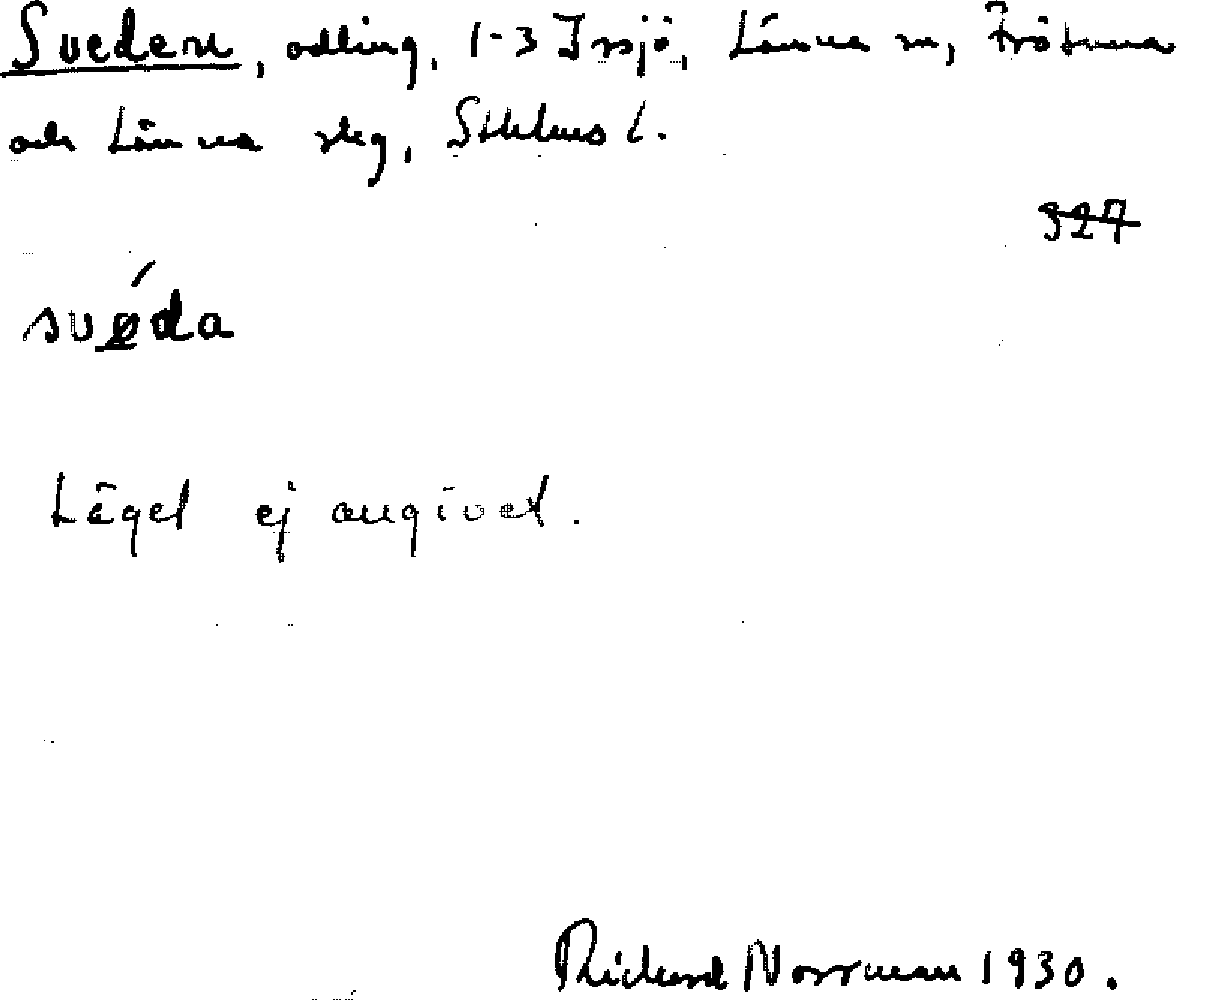 Sveden, odling, 1-3 Irsjö, Länna sn, Frötuna
och Länna skg, Sthlms l.
327
svéda
Läget ej angivet.
Rickard Norrman 1930.